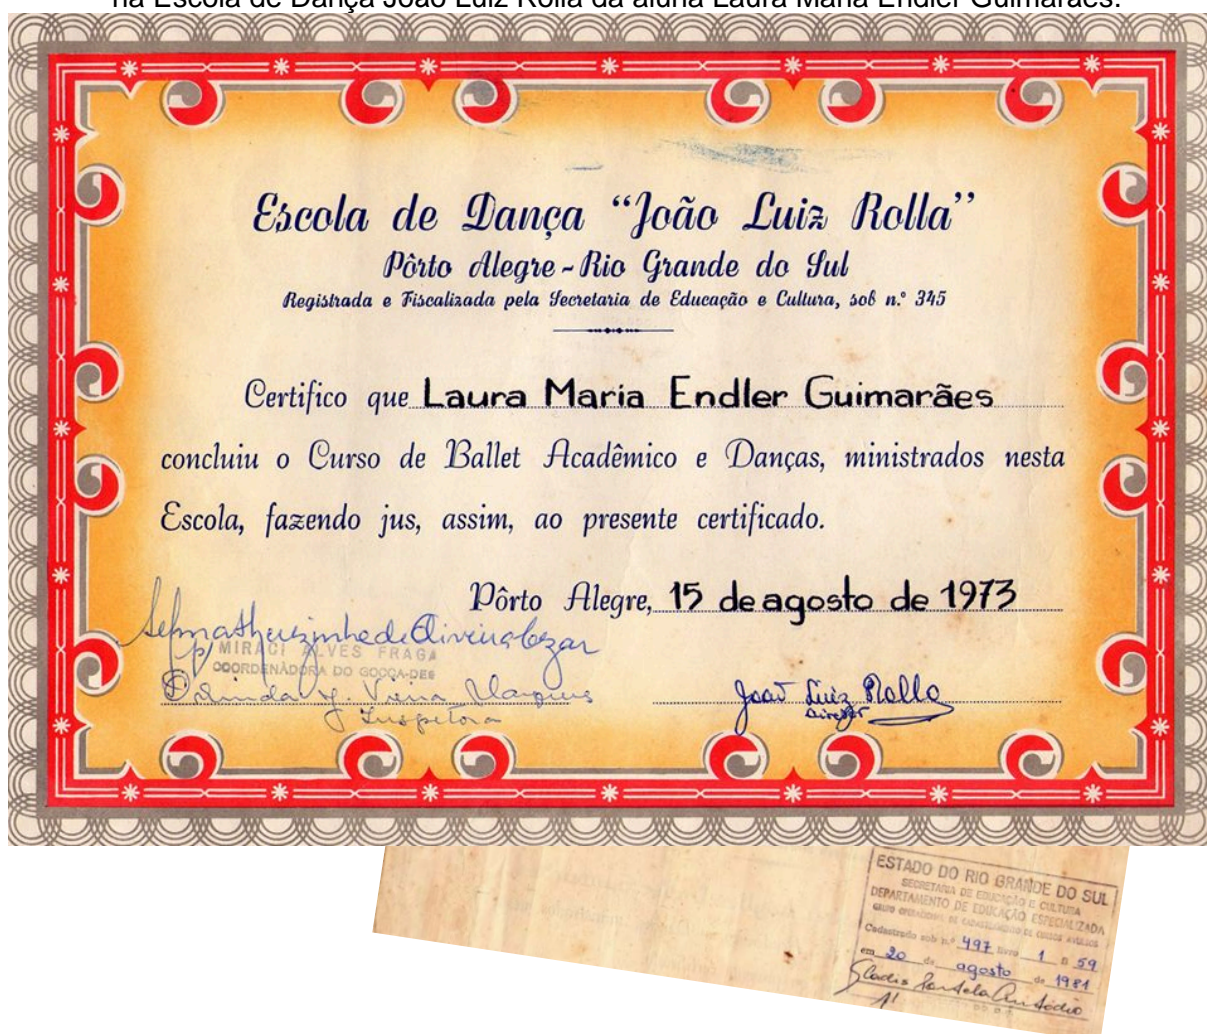 na Escola de Dança João Luiz Rolla da aluna Laura Maria Endler Guimarães.
Escola de Dança “João Luiz Rolla”
Pôrto Alegre - Rio Grande do Sul
Registrada e Fiscalizada pela Secretaria de Educação e Cultura, sob n.º 345
Certifico que Laura Maria Endler Guimarães
concluiu o Curso de Ballet Acadêmico e Danças, ministrados nesta
Escola, fazendo jus, assim, ao presente certificado.
Pôrto Alegre, 15 de agosto de 1973
de Oliveira
p/ MIRACI ALVES FRAGA
COORDENADORA DO
Vieira Marques
Inspetora
João Luiz Rolla
Diretor
ESTADO DO RIO GRANDE DO SUL
SECRETARIA DE EDUCAÇÃO E CULTURA
DEPARTAMENTO DE EDUCAÇÃO ESPECIALIZADA
Cadastrado sob n.º 497 livro 1 fl 59
em 20 de agosto de 1981